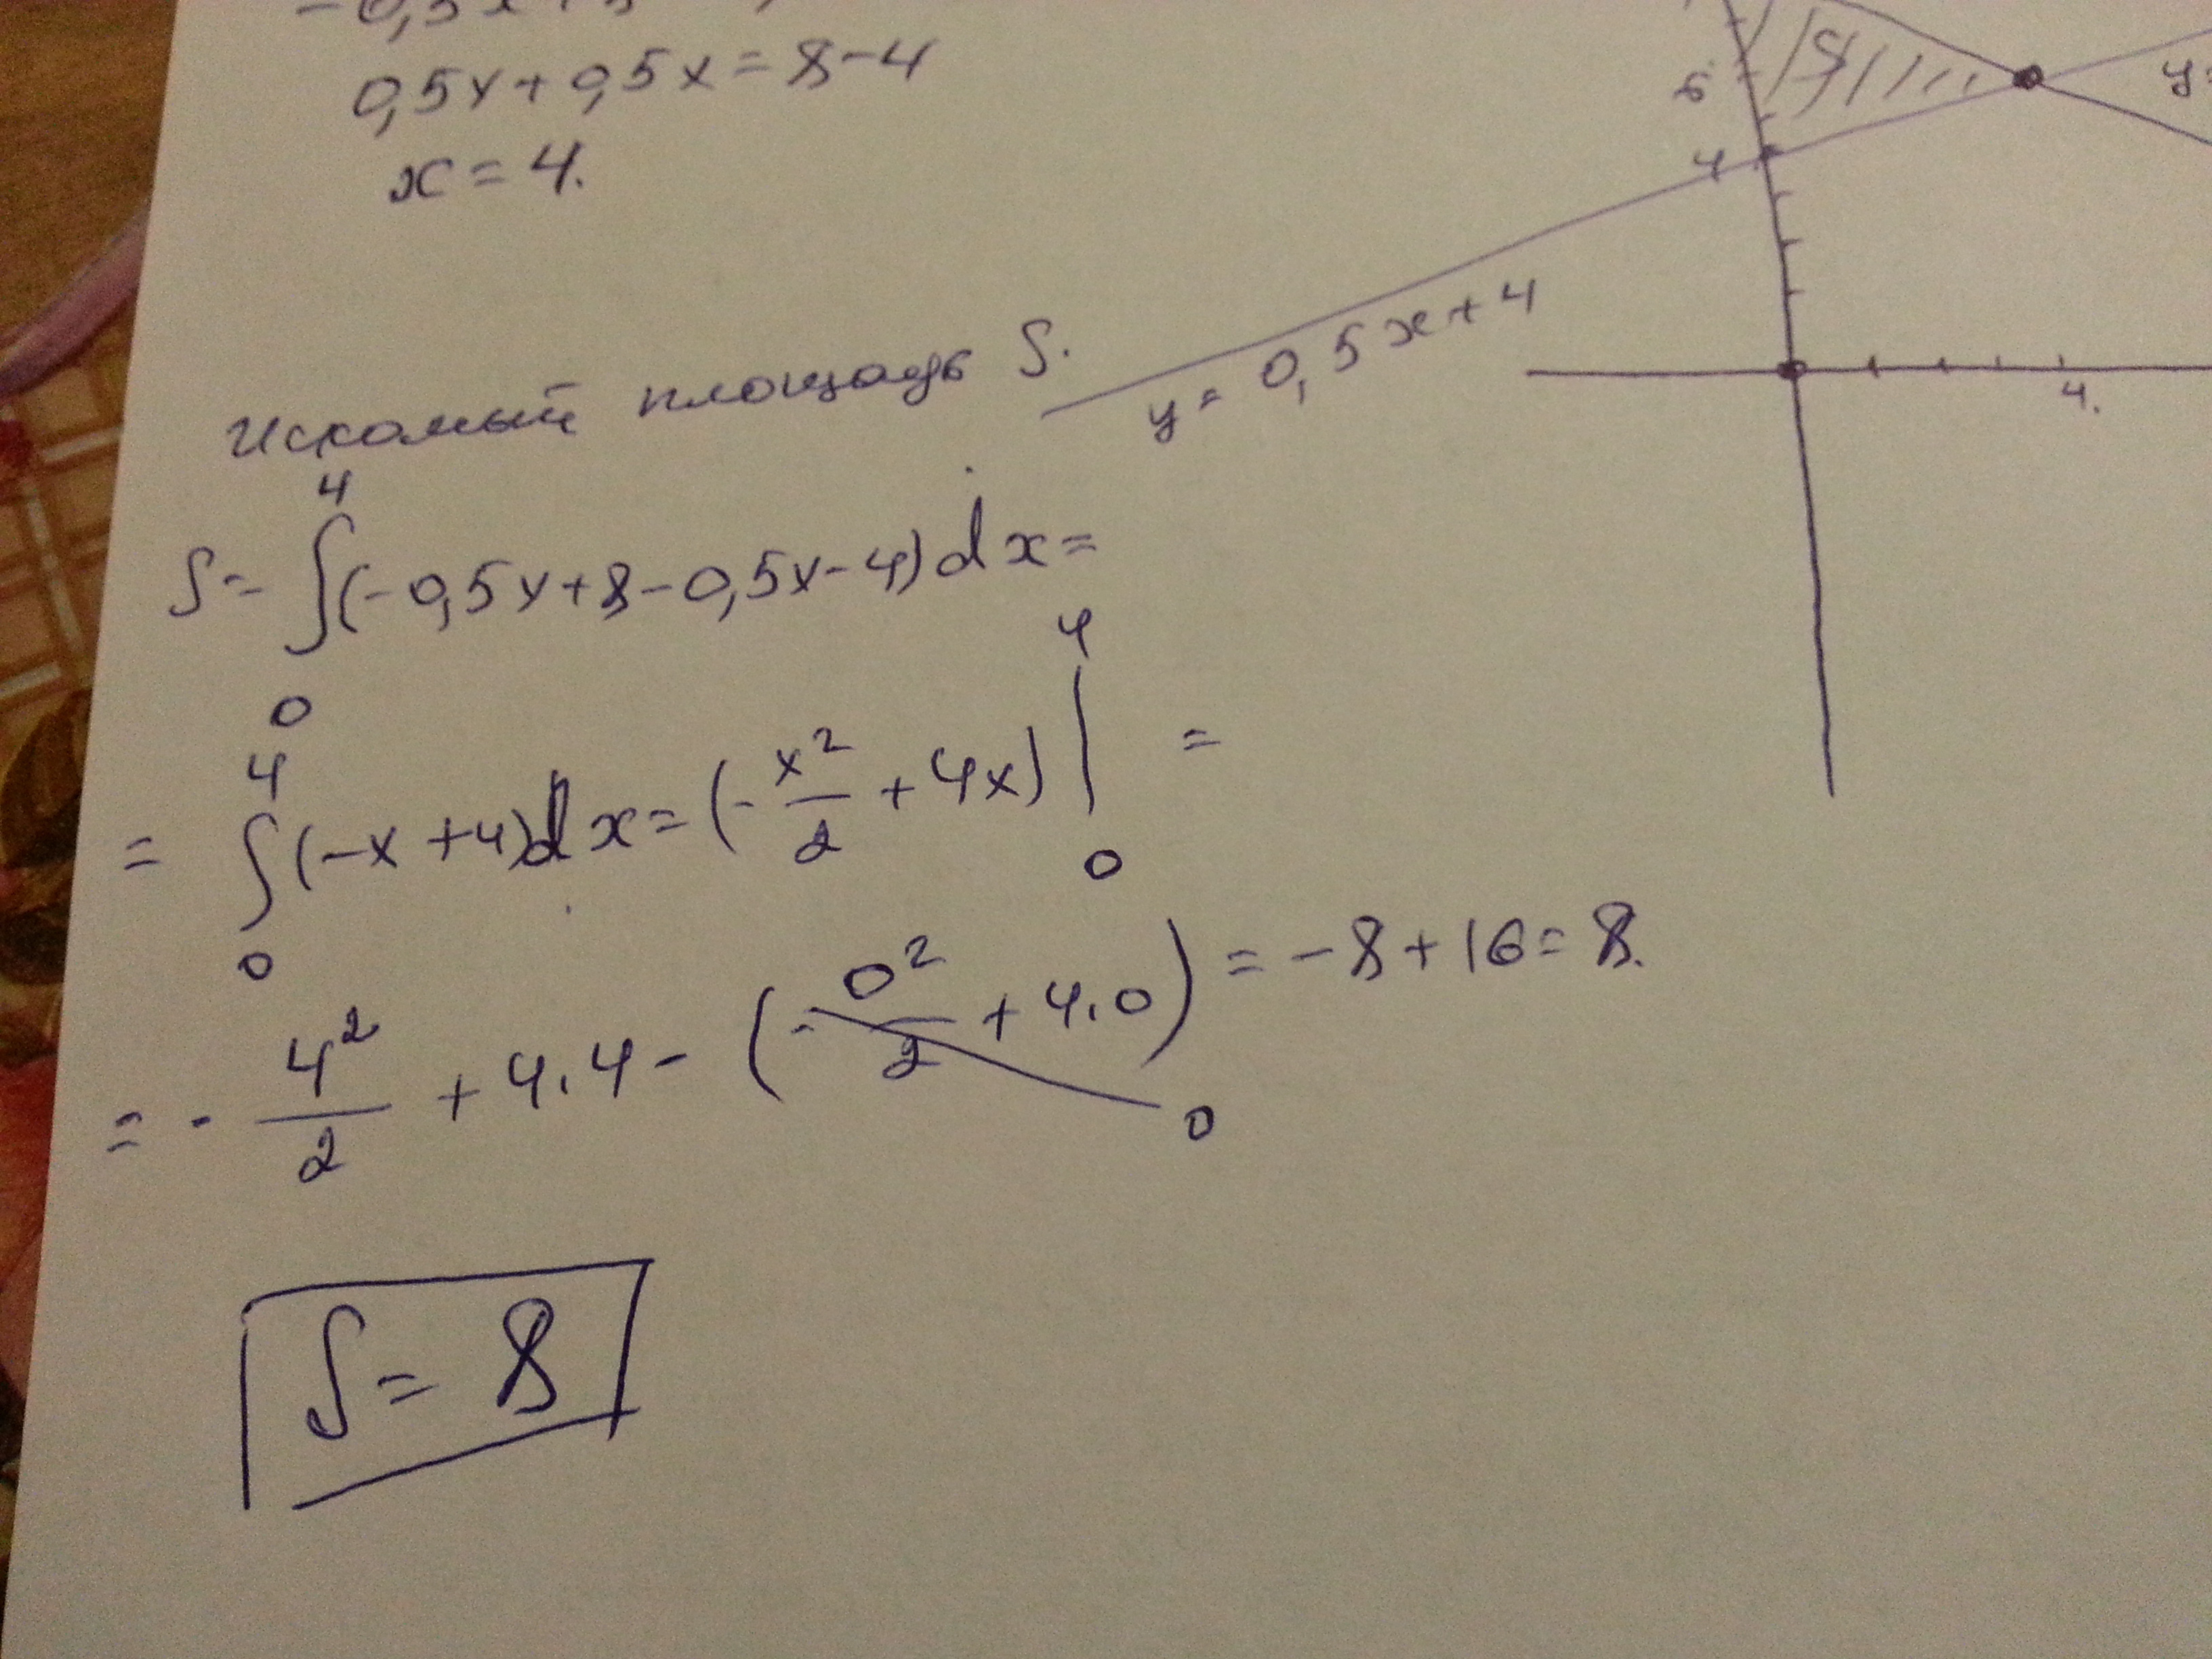 0,5x+0,5x=8-4
x=4.
Искомый площадь S.
S=∫₀⁴(-0,5x+8-0,5x-4)dx=
=∫₀⁴(-x+4)dx=(-x²/2+4x)|₀⁴=
=-4²/2+4·4-(-0²/2+4·0)=-8+16=8.
0
S=8
S
6
y=
4
y=0,5x+4
4.